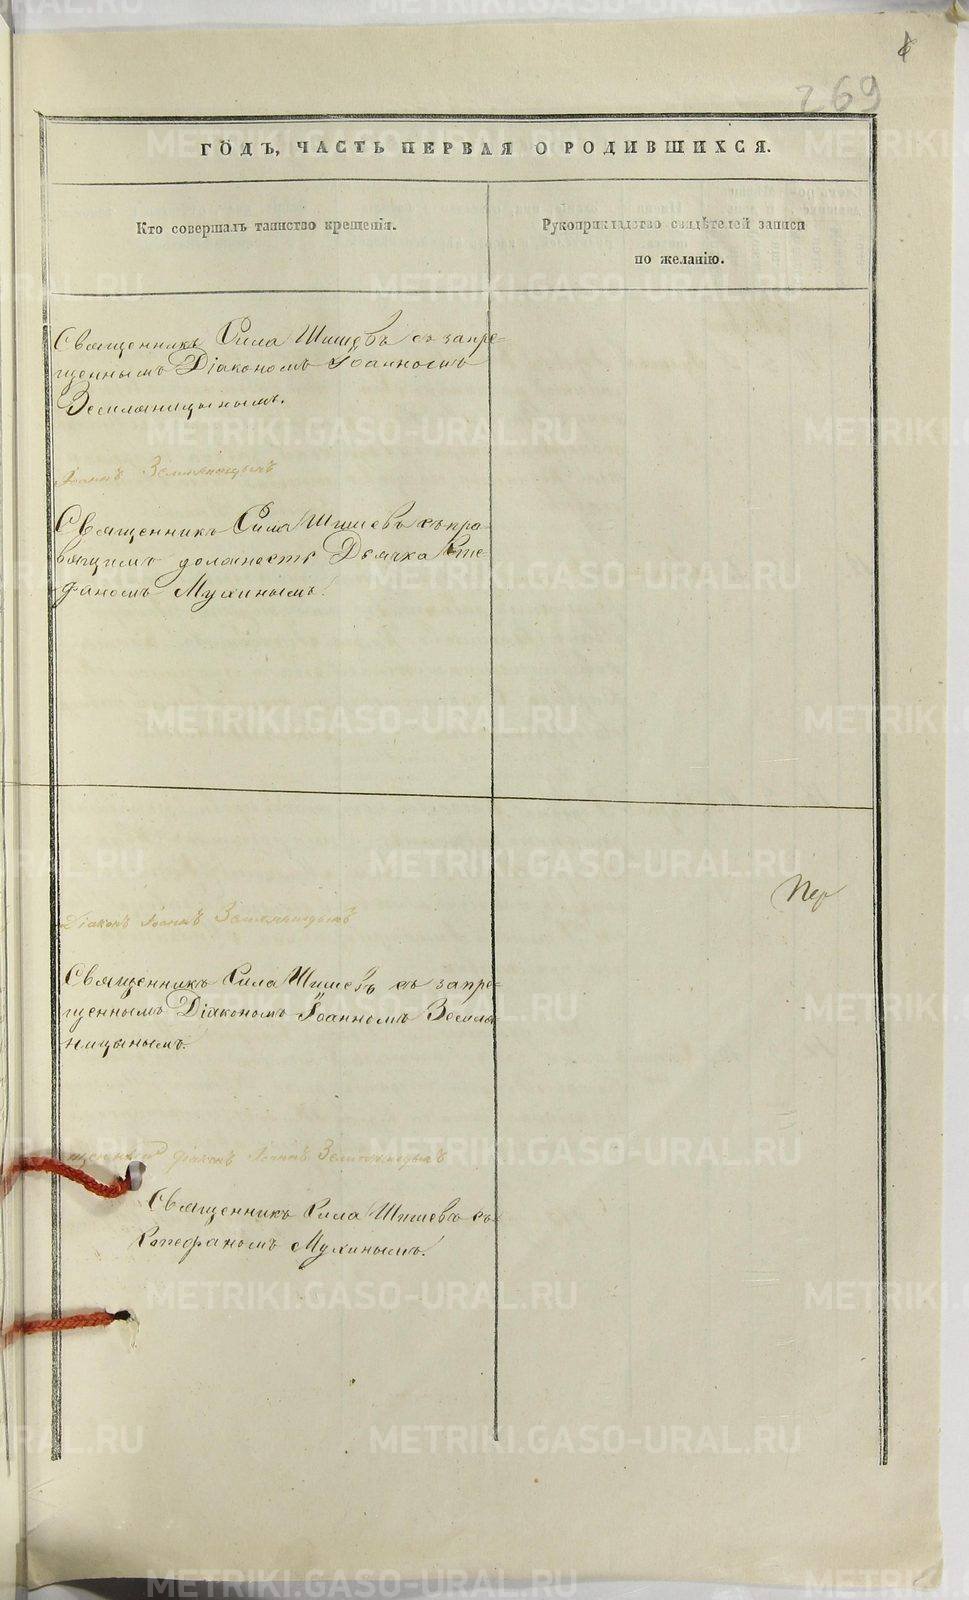 269
ГОДЪ, ЧАСТЬ ПЕРВАЯ О РОДИВШИХСЯ.
Кто совершалъ таинство крещенія.
Рукоприкладство свидѣтелей записи
по желанію.
Священникъ Сила Шишевъ съ запре-
щеннымъ Діакономъ Іоанномъ
Земляницынымъ.
Іоаннъ Земляницынъ
Священникъ Сила Шишевъ съ пра-
вящимъ должность Дьячка Сте-
фаномъ Мухинымъ.
Пер
Діаконъ Іоаннъ Земляницынъ
Священникъ Сила Шишевъ съ запре-
щеннымъ Діакономъ Іоанномъ Земля-
ницынымъ.
щенный діаконъ Іоаннъ Земляницынъ
Священникъ Сила Шишевъ съ
Стефаномъ Мухинымъ.
METRIKI.GASO-URAL.RU